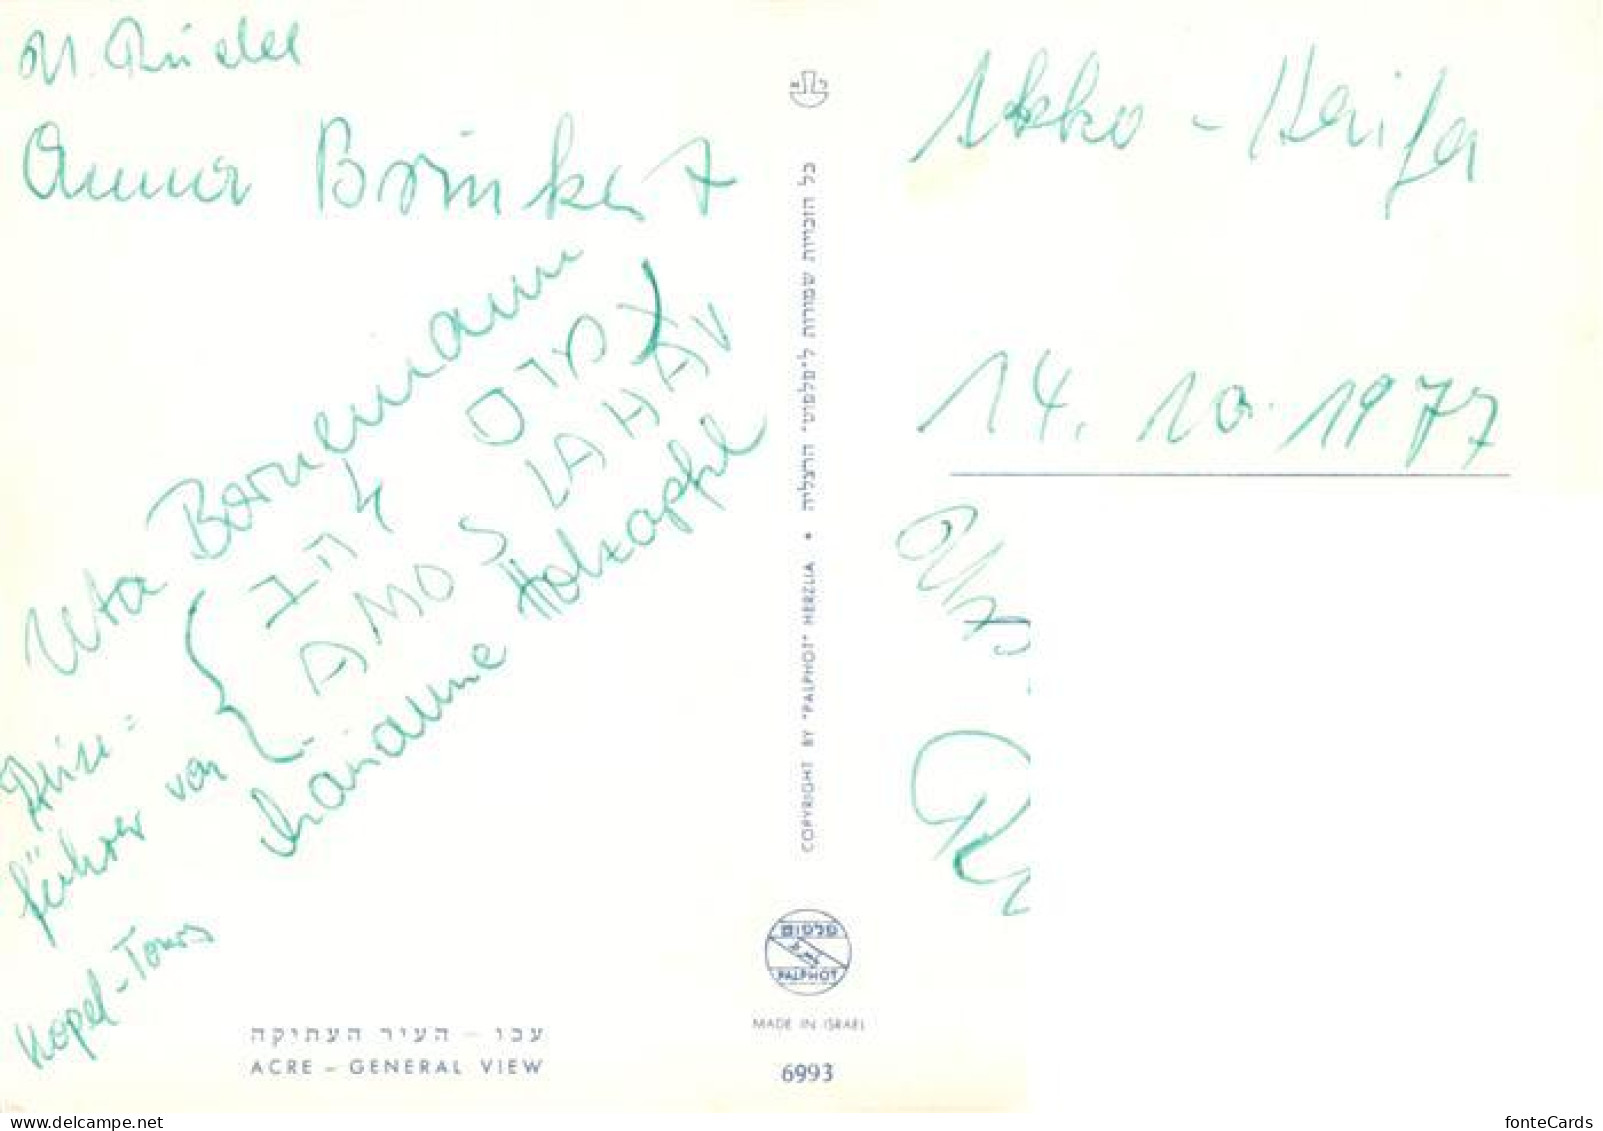 Anna Brinkert
Uta Bornemann
עמוס
להב
AMOS LAHAV
Marianne Holzapfel
Reise=
führer von
Kopel-Tours
עכו – העיר העתיקה
ACRE – GENERAL VIEW
כל הזכויות שמורות ל"פלפוט" הרצליה • COPYRIGHT BY "PALPHOT" HERZLIA
פלפוט
PALPHOT
MADE IN ISRAEL
6993
Akko - Haifa
14. 10. 1977
fonteCards